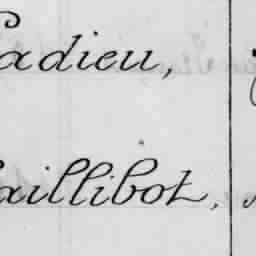 adieu,
aillibot,